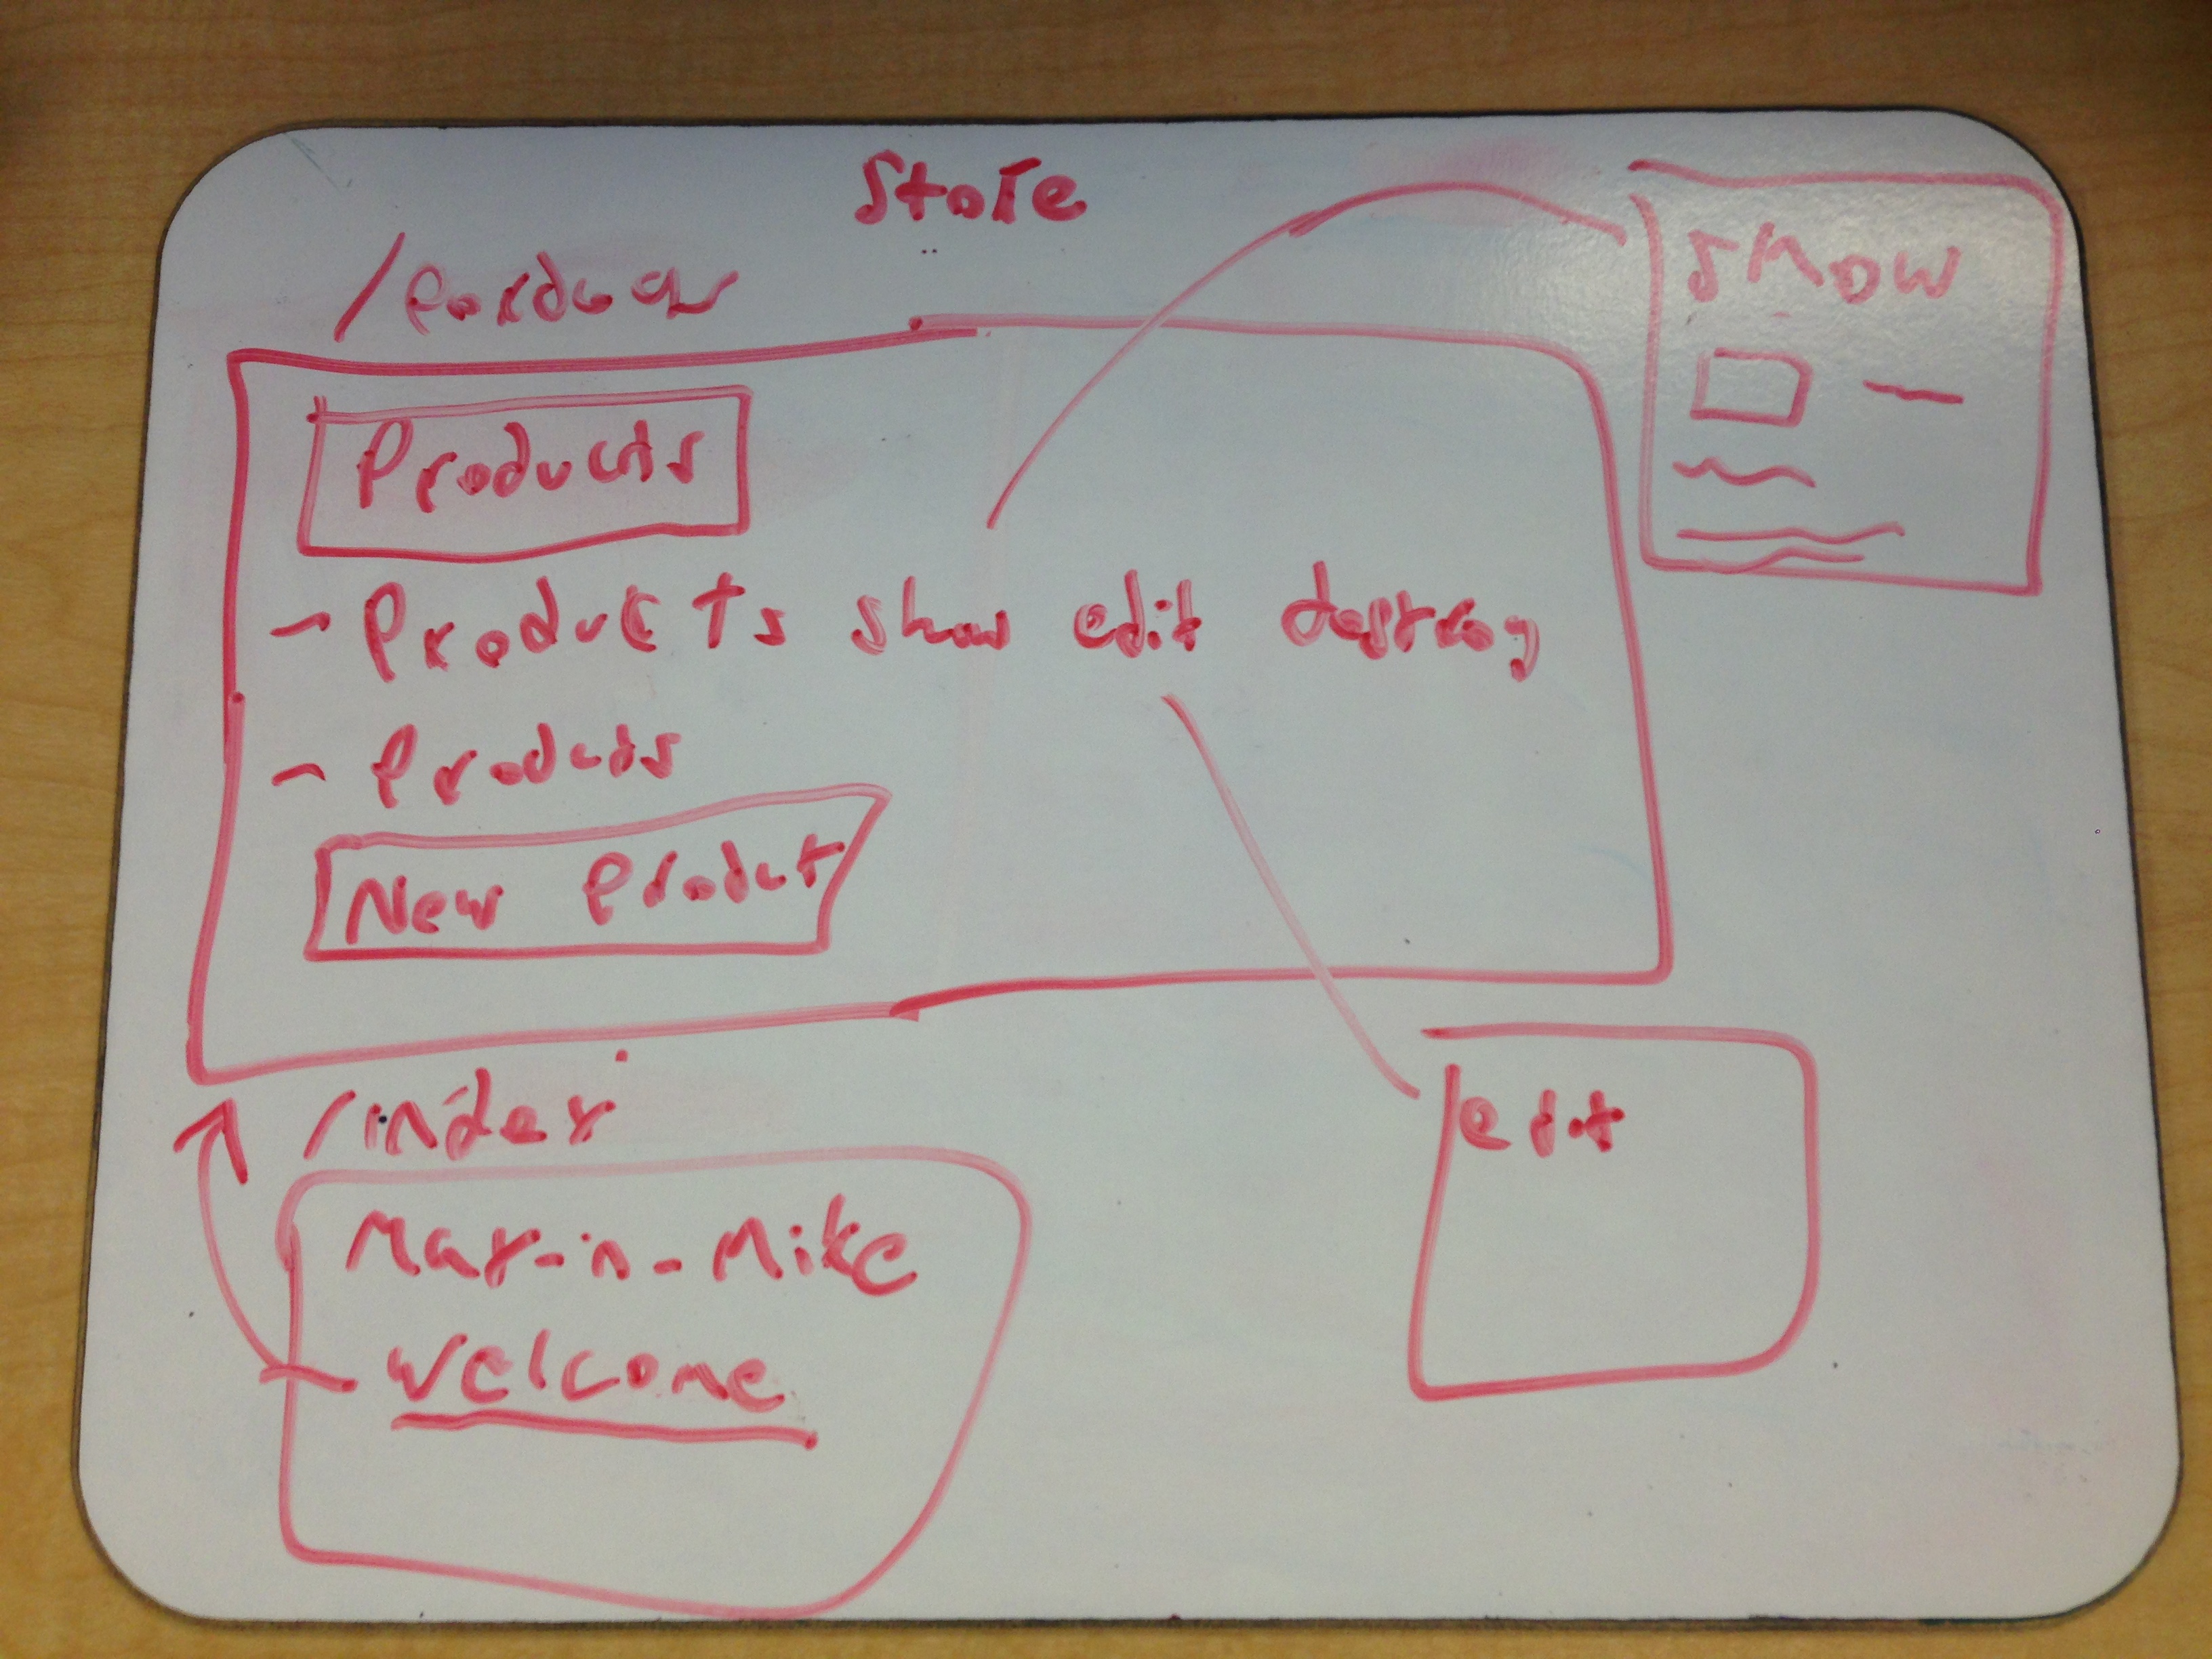 Store
Products
- Products show edit destroy
- Products
New Product
/index
Mat-in-Mike
Welcome
Show
/edit